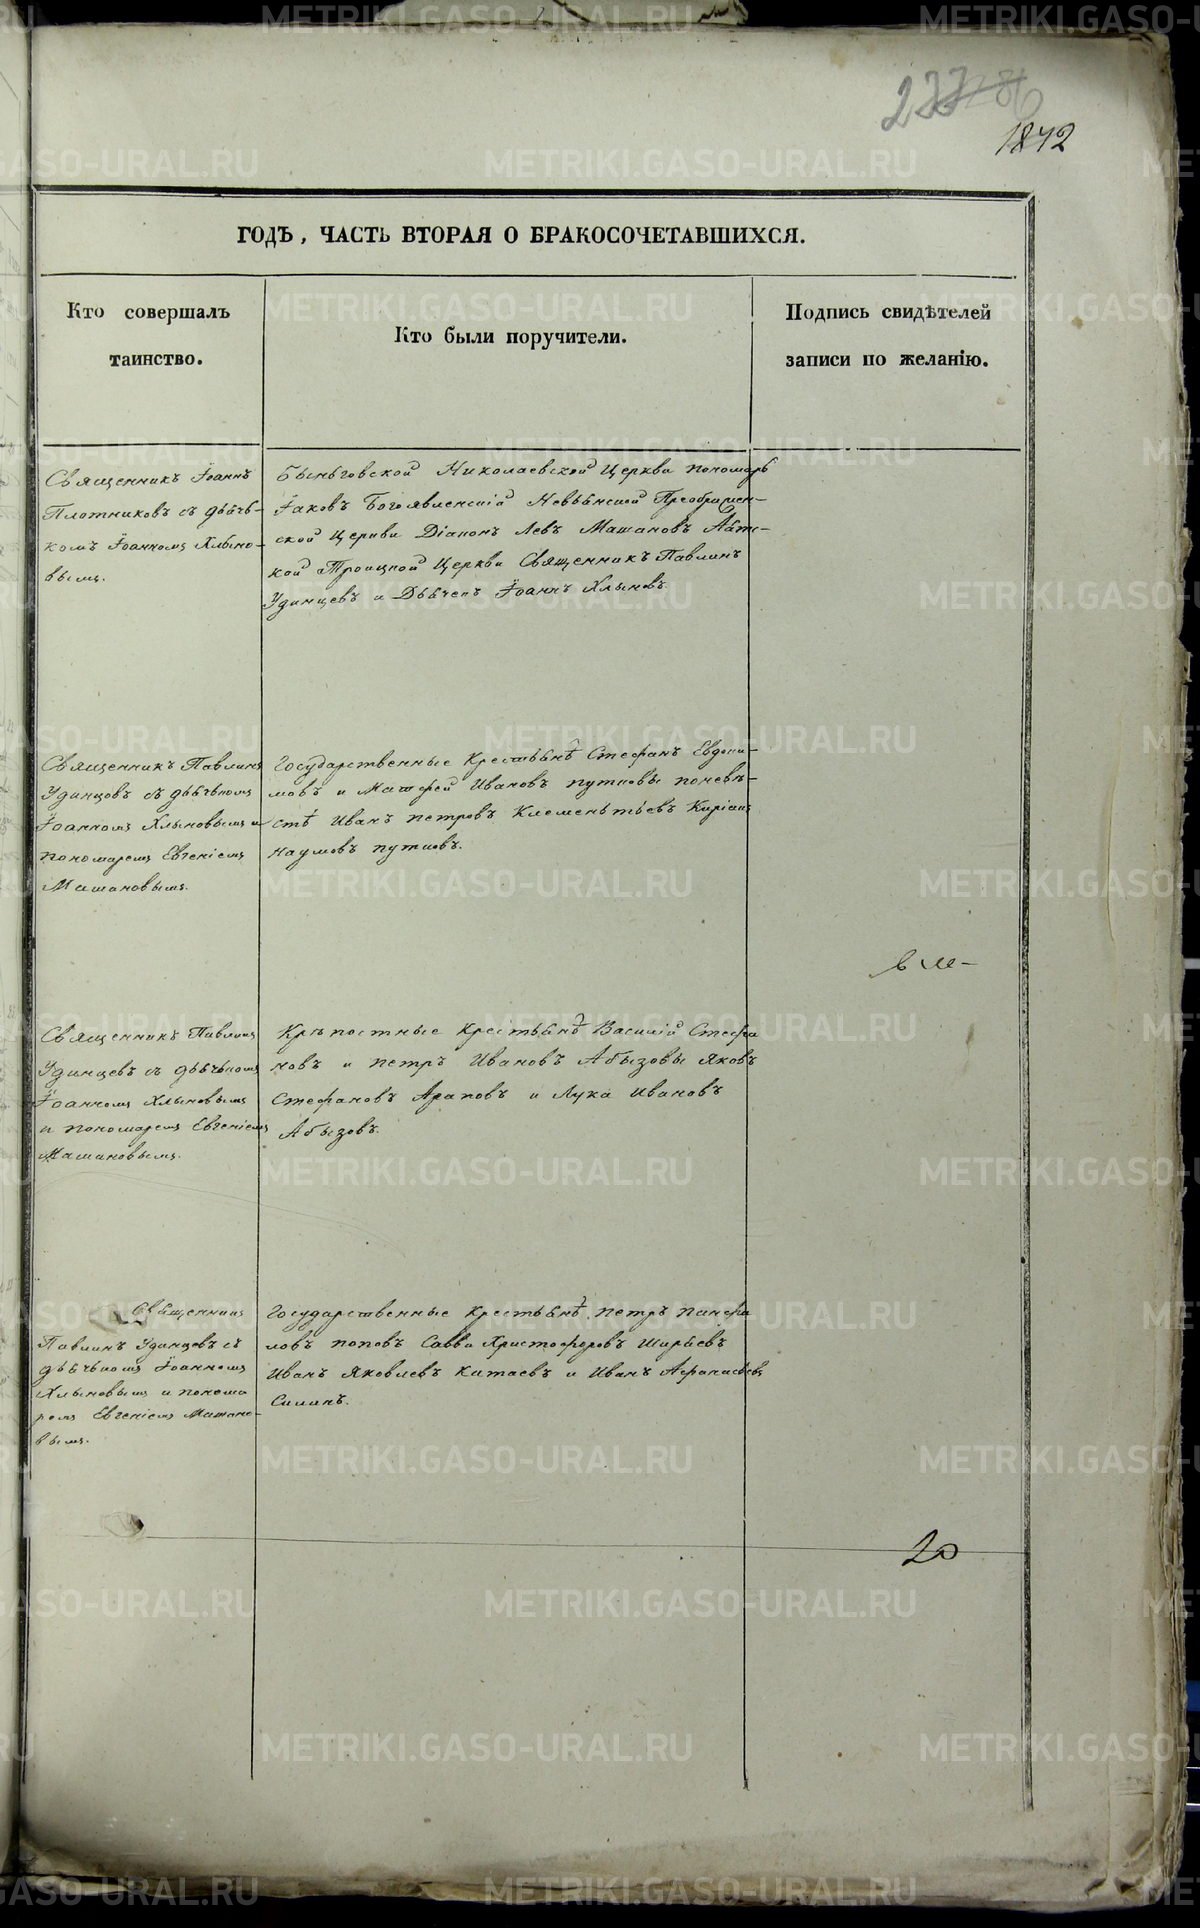 1842
ГОДѢ, ЧАСТЬ ВТОРАЯ О БРАКОСОЧЕТАВШИХСЯ.
Кто совершалъ
таинство.
Кто были поручители.
Подпись свидѣтелей
записи по желанію.
Священникъ Іоаннъ
Плотниковъ съ дьячь-
комъ Іоанномъ Хлыно-
вымъ.
Быньговской Николаевской Церкви пономарь
Іаковъ Богоявленскій Невьянской Преображен-
ской Церкви Діаконъ Левъ Машановъ Аятс-
кой Троицкой Церкви Священникъ Павлинъ
Удинцевъ и Дьячекъ Іоаннъ Хлыновъ.
Священникъ Павлинъ
Удинцовъ съ дьячькомъ
Іоанномъ Хлыновымъ и
пономаремъ Евгеніемъ
Машановымъ.
Государственные Крестьянѣ Стефанъ Евдоки-
мовъ и Матфей Ивановъ путковы поневѣ-
стѣ Иванъ петровъ Клементьевъ Киріакъ
Наумовъ путковъ.
Священникъ Павлинъ
Удинцевъ съ дьячькомъ
Іоанномъ Хлыновымъ
и пономаремъ Евгеніемъ
Машановымъ.
Крѣпостные крестьянѣ Василій Стефа
новъ и петръ Ивановъ Абызовы Яковъ
Стефановъ Араповъ и Лука Ивановъ
Абызовъ.
Священникъ
Павлинъ Удинцовъ съ
дьячькомъ Іоанномъ
Хлыновымъ и понома
ремъ Евгеніемъ Машано-
вымъ.
Государственные крестьянѣ петръ панфи
ловъ поповъ Савва Христофоровъ Ширяевъ
Иванъ Яковлевъ Катаевъ и Иванъ Афанасьевъ
Силинъ.
20
METRIKI.GASO-URAL.RU